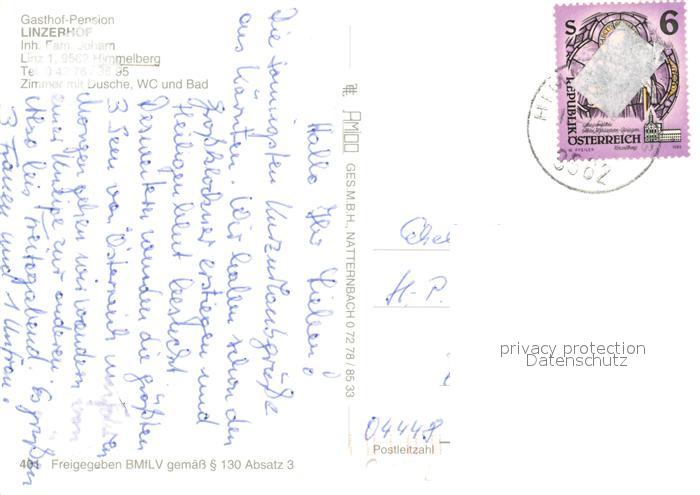 Gasthof-Pension
LINZERHOF
Inh. Fam. Joham
Linz 1, 9562 Himmelberg
Tel. 0 42 76 / 36 95
Zimmer mit Dusche, WC und Bad
Hallo Ihr Lieben!
Die sonnigsten Kurzurlaubsgrüße
aus Kärnten. Wir haben schon den
Großglockner erstiegen und
Heiligenblut besucht.
Desweiteren wurden die größten
3 Seen von Österreich
Morgen gehen wir wandern von
einer Kneipe zur anderen.
Also bis Freitagabend. Es grüßen
3 Frauen und 1 Unfrau.
401 Freigegeben BMfLV gemäß § 130 Absatz 3
AMICO GES.M.B.H., NATTERNBACH 0 72 78 / 85 33
S 6
REPUBLIK
ÖSTERREICH
9562
H.-P.
04448
Postleitzahl
privacy protection
Datenschutz